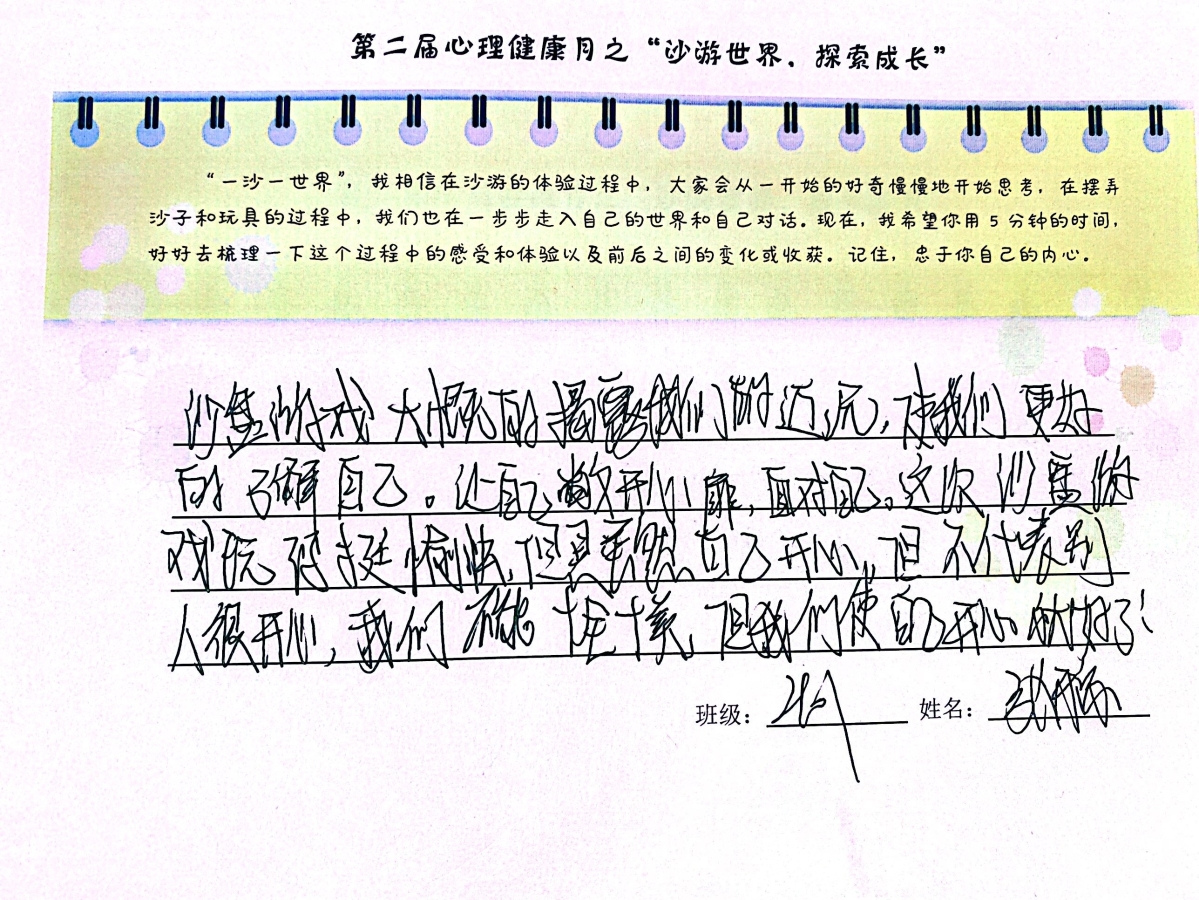 第二届心理健康月之“沙游世界，探索成长”
“一沙一世界”，我相信在沙游的体验过程中，大家会从一开始的好奇慢慢地开始思考，在摆弄
沙子和玩具的过程中，我们也在一步步走入自己的世界和自己对话。现在，我希望你用5分钟的时间，
好好去梳理一下这个过程中的感受和体验以及前后之间的变化或收获。记住，忠于你自己的内心。
沙盘游戏大概的揭露我们的近况，使我们更好
的了解自己。让自己敞开心扉，面对自己。这次沙盘游
戏玩得挺愉快，但是虽然自己开心，但不代表别
人很开心，我们不能，但我们使自己开心的就好了！
班级：
姓名：